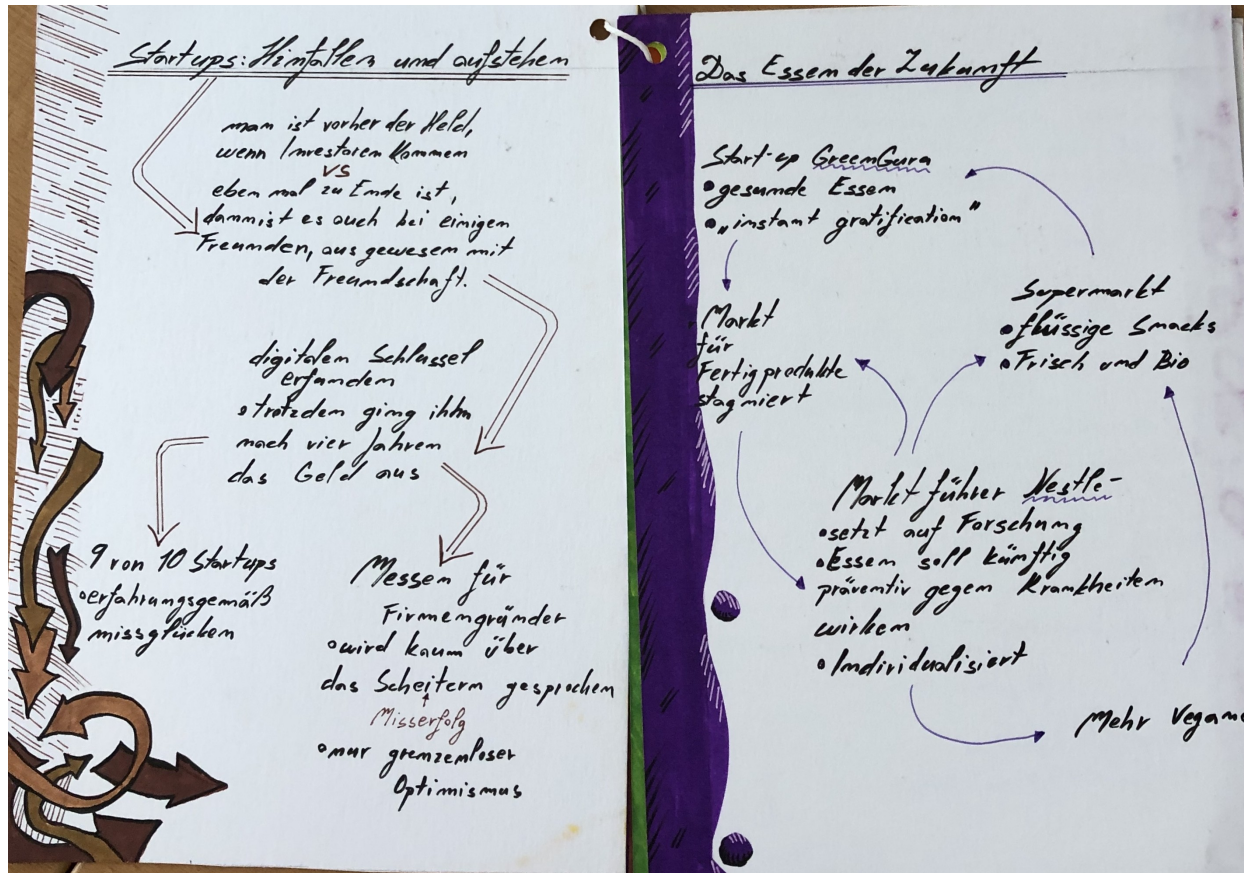 Startups: Hinfallen und aufstehen
man ist vorher der Held,
wenn Investoren kommen
VS
eben mal zu Ende ist,
dann ist es auch bei einigen
Freunden, aus gewesen mit
der Freundschaft.
digitalen Schlussel
erfanden
• trotzdem ging ihhn
nach vier Jahren
das Geld aus
9 von 10 Startups
• erfahrungsgemäß
missglücken
Messen für
Firmengründer
• wird kaum über
das Scheitern gesprochen
↑
Misserfolg
• nur grenzenloser
Optimismus
Das Essen der Zukunft
Start-up GreenGura
• gesunde Essen
• „instant gratification"
Markt
für
Fertigprodukte
stagniert
Supermarkt
• flüssige Snacks
• Frisch und Bio
Marktführer Nestle-
• setzt auf Forschung
• Essen soll künftig
präventiv gegen Krankheiten
wirken
• Individualisiert
Mehr Vegane